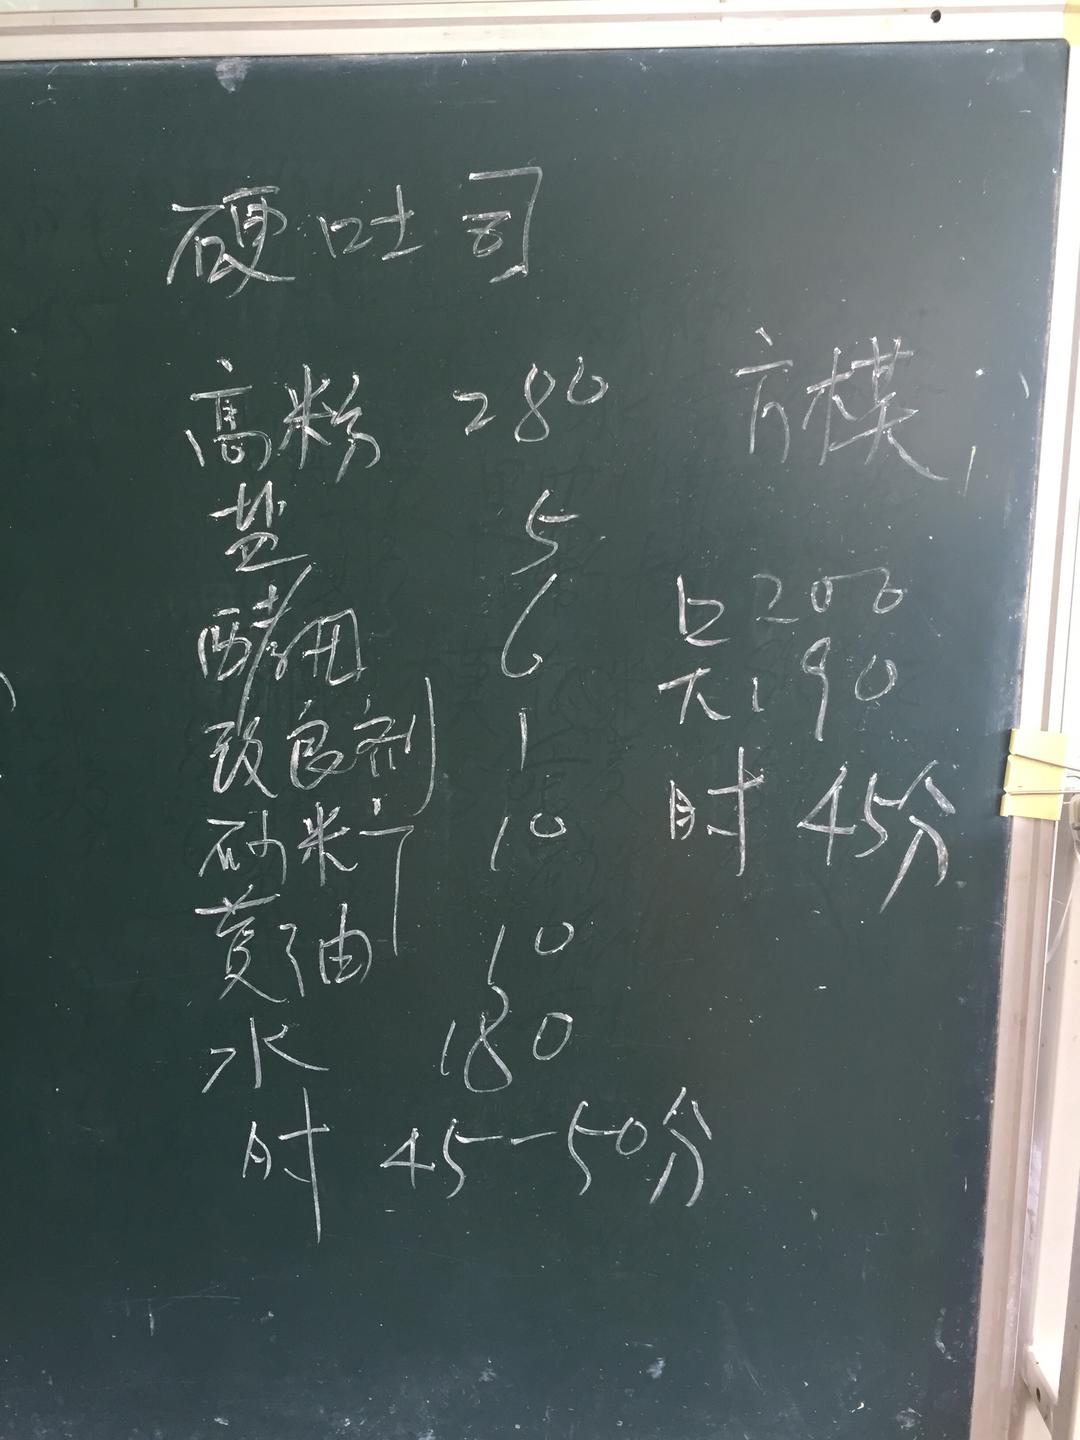 硬吐司
高粉 280
盐 5
酵母 6
改良剂 1
砂糖 10
黄油 10
水 180
时 45-50分
方模
上 200
下 190
时 45分